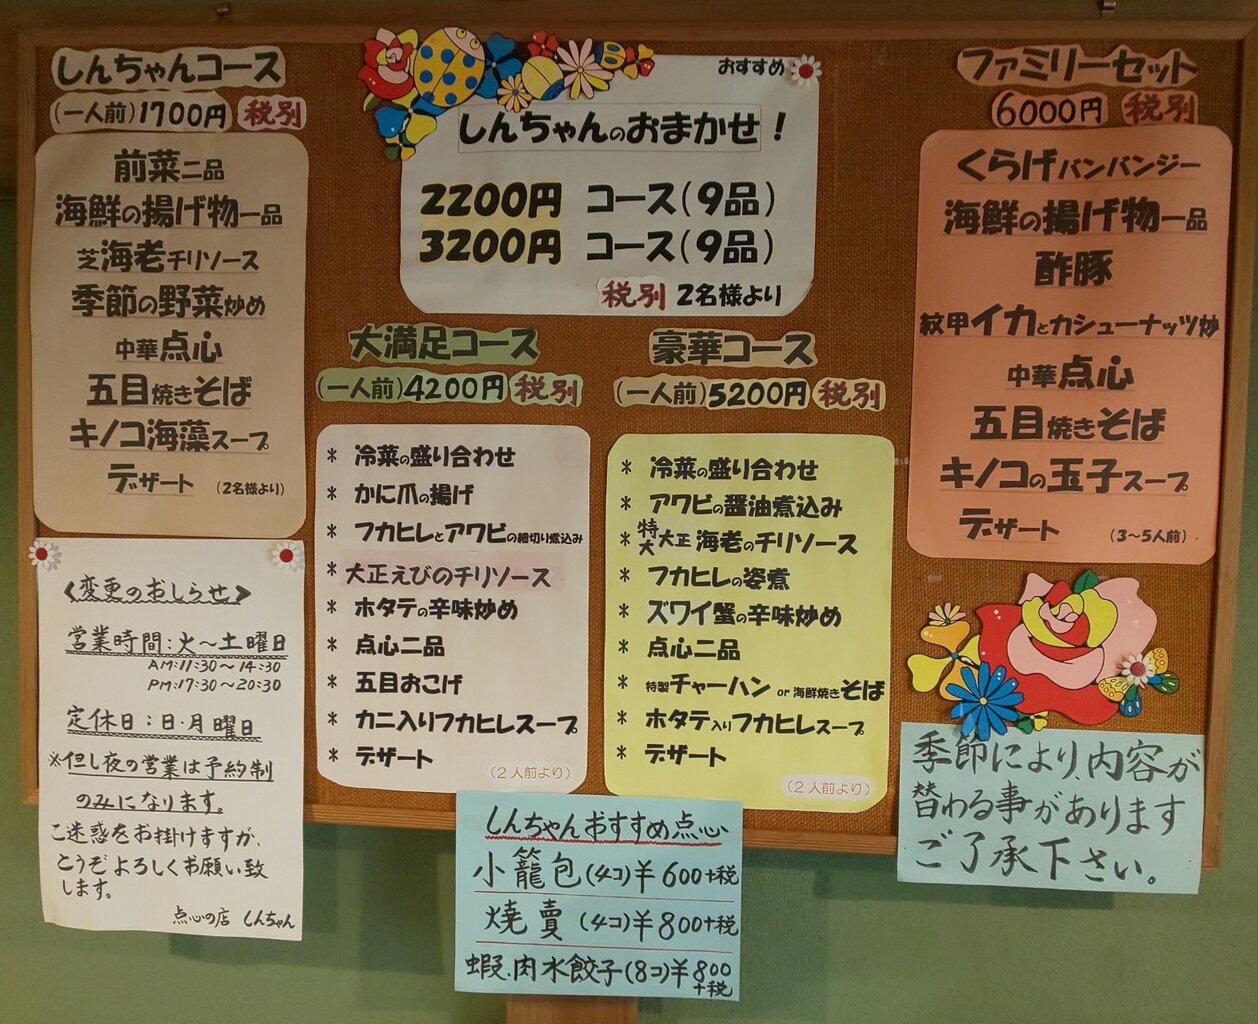 しんちゃんコース
(一人前)1700円 税別
前菜二品
海鮮の揚げ物一品
芝海老チリソース
季節の野菜炒め
中華点心
五目焼きそば
キノコ海藻スープ
デザート (2名様より)
おすすめ
しんちゃんのおまかせ！
2200円 コース(9品)
3200円 コース(9品)
税別 2名様より
大満足コース
(一人前)4200円 税別
* 冷菜の盛り合わせ
* かに爪の揚げ
* フカヒレとアワビの細切り煮込み
* 大正えびのチリソース
* ホタテの辛味炒め
* 点心二品
* 五目おこげ
* カニ入りフカヒレスープ
* デザート
(2人前より)
豪華コース
(一人前)5200円 税別
* 冷菜の盛り合わせ
* アワビの醤油煮込み
* 特大大正海老のチリソース
* フカヒレの姿煮
* ズワイ蟹の辛味炒め
* 点心二品
* 特製チャーハン or 海鮮焼きそば
* ホタテ入りフカヒレスープ
* デザート
(2人前より)
ファミリーセット
6000円 税別
くらげバンバンジー
海鮮の揚げ物一品
酢豚
紋甲イカとカシューナッツ炒
中華点心
五目焼きそば
キノコの玉子スープ
デザート (3〜5人前)
<変更のおしらせ>
営業時間:火〜土曜日
AM:11:30〜14:30
PM:17:30〜20:30
定休日:日・月曜日
※但し夜の営業は予約制
のみになります。
ご迷惑をお掛けますが、
どうぞよろしくお願い致
します。
点心の店 しんちゃん
しんちゃんおすすめ点心
小籠包(4コ)¥600+税
焼賣(4コ)¥800+税
蝦、肉水餃子(8コ)¥800
+税
季節により、内容が
替わる事があります
ご了承下さい。